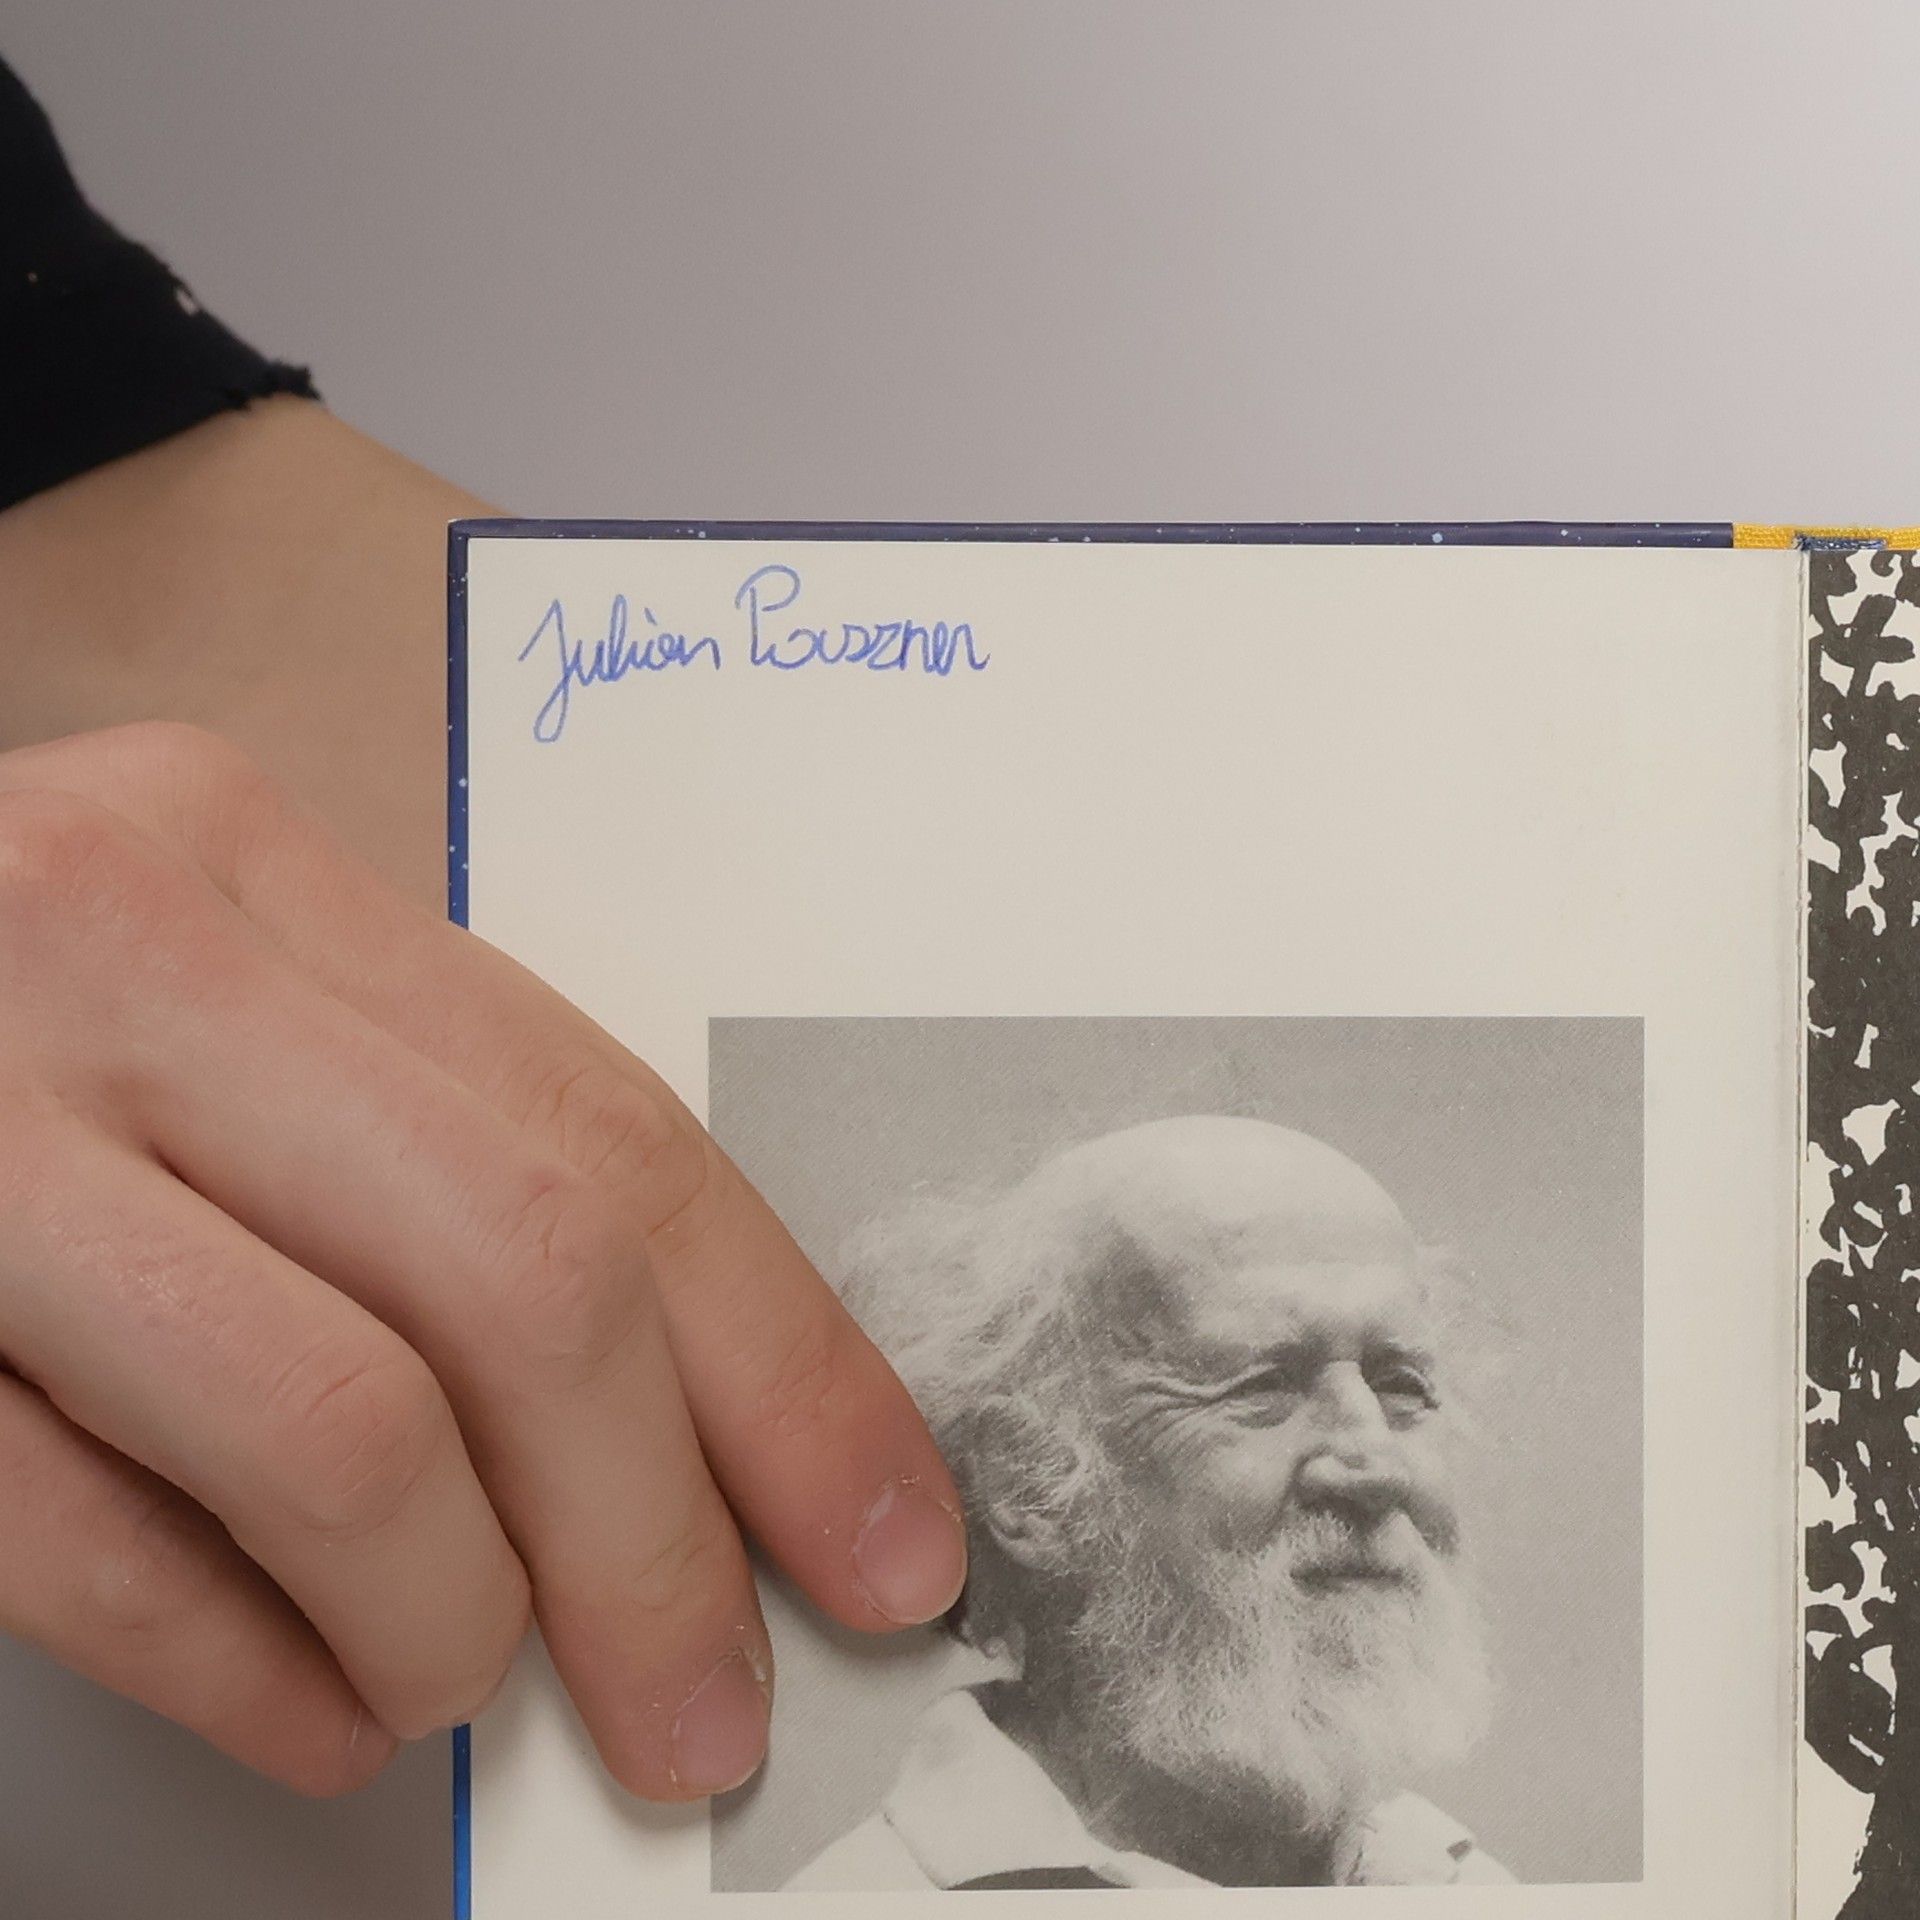 Julian Pouszner